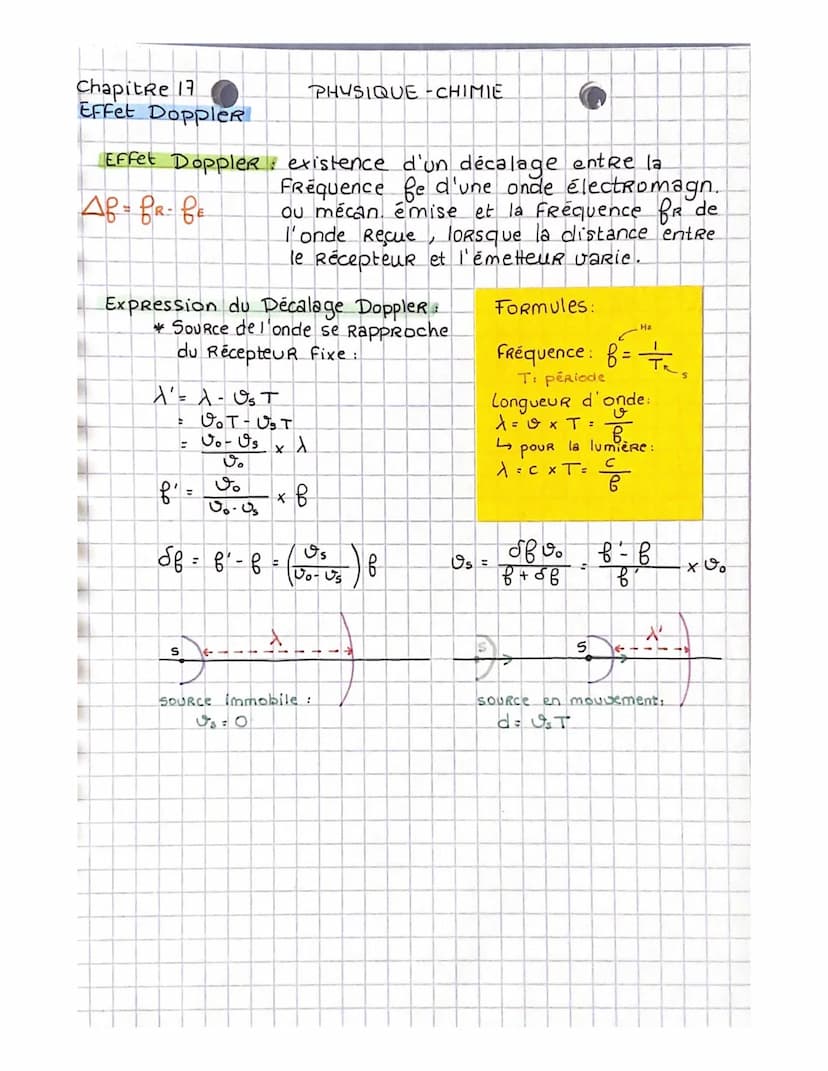 Chapitre 17
PHYSIQUE - CHIMIE
Effet Doppler
Effet Doppler : existence d'un décalage entre la
fréquence fE d'une onde électromagn.
Δf = fR - fE
ou mécan. émise et la fréquence fR de
l'onde reçue, lorsque la distance entre
le récepteur et l'émetteur varie.
Expression du Décalage Doppler :
* Source de l'onde se rapproche
du récepteur fixe :
λ' = λ - vs T
= v0 T - vs T
= (v0 - vs) / v0 × λ
f' = v0 / (v0 - vs) × f
Formules :
Hz
Fréquence : f = 1 / T
s
T : période
Longueur d'onde :
λ = v × T = v / f
↳ pour la lumière :
λ = c × T = c / f
δf = f' - f = (vs / (v0 - vs)) f
vs = δf v0 / (f + δf) = (f' - f) / f' × v0
S λ
S S λ'
source immobile :
vs = 0
source en mouvement,
d = vs T